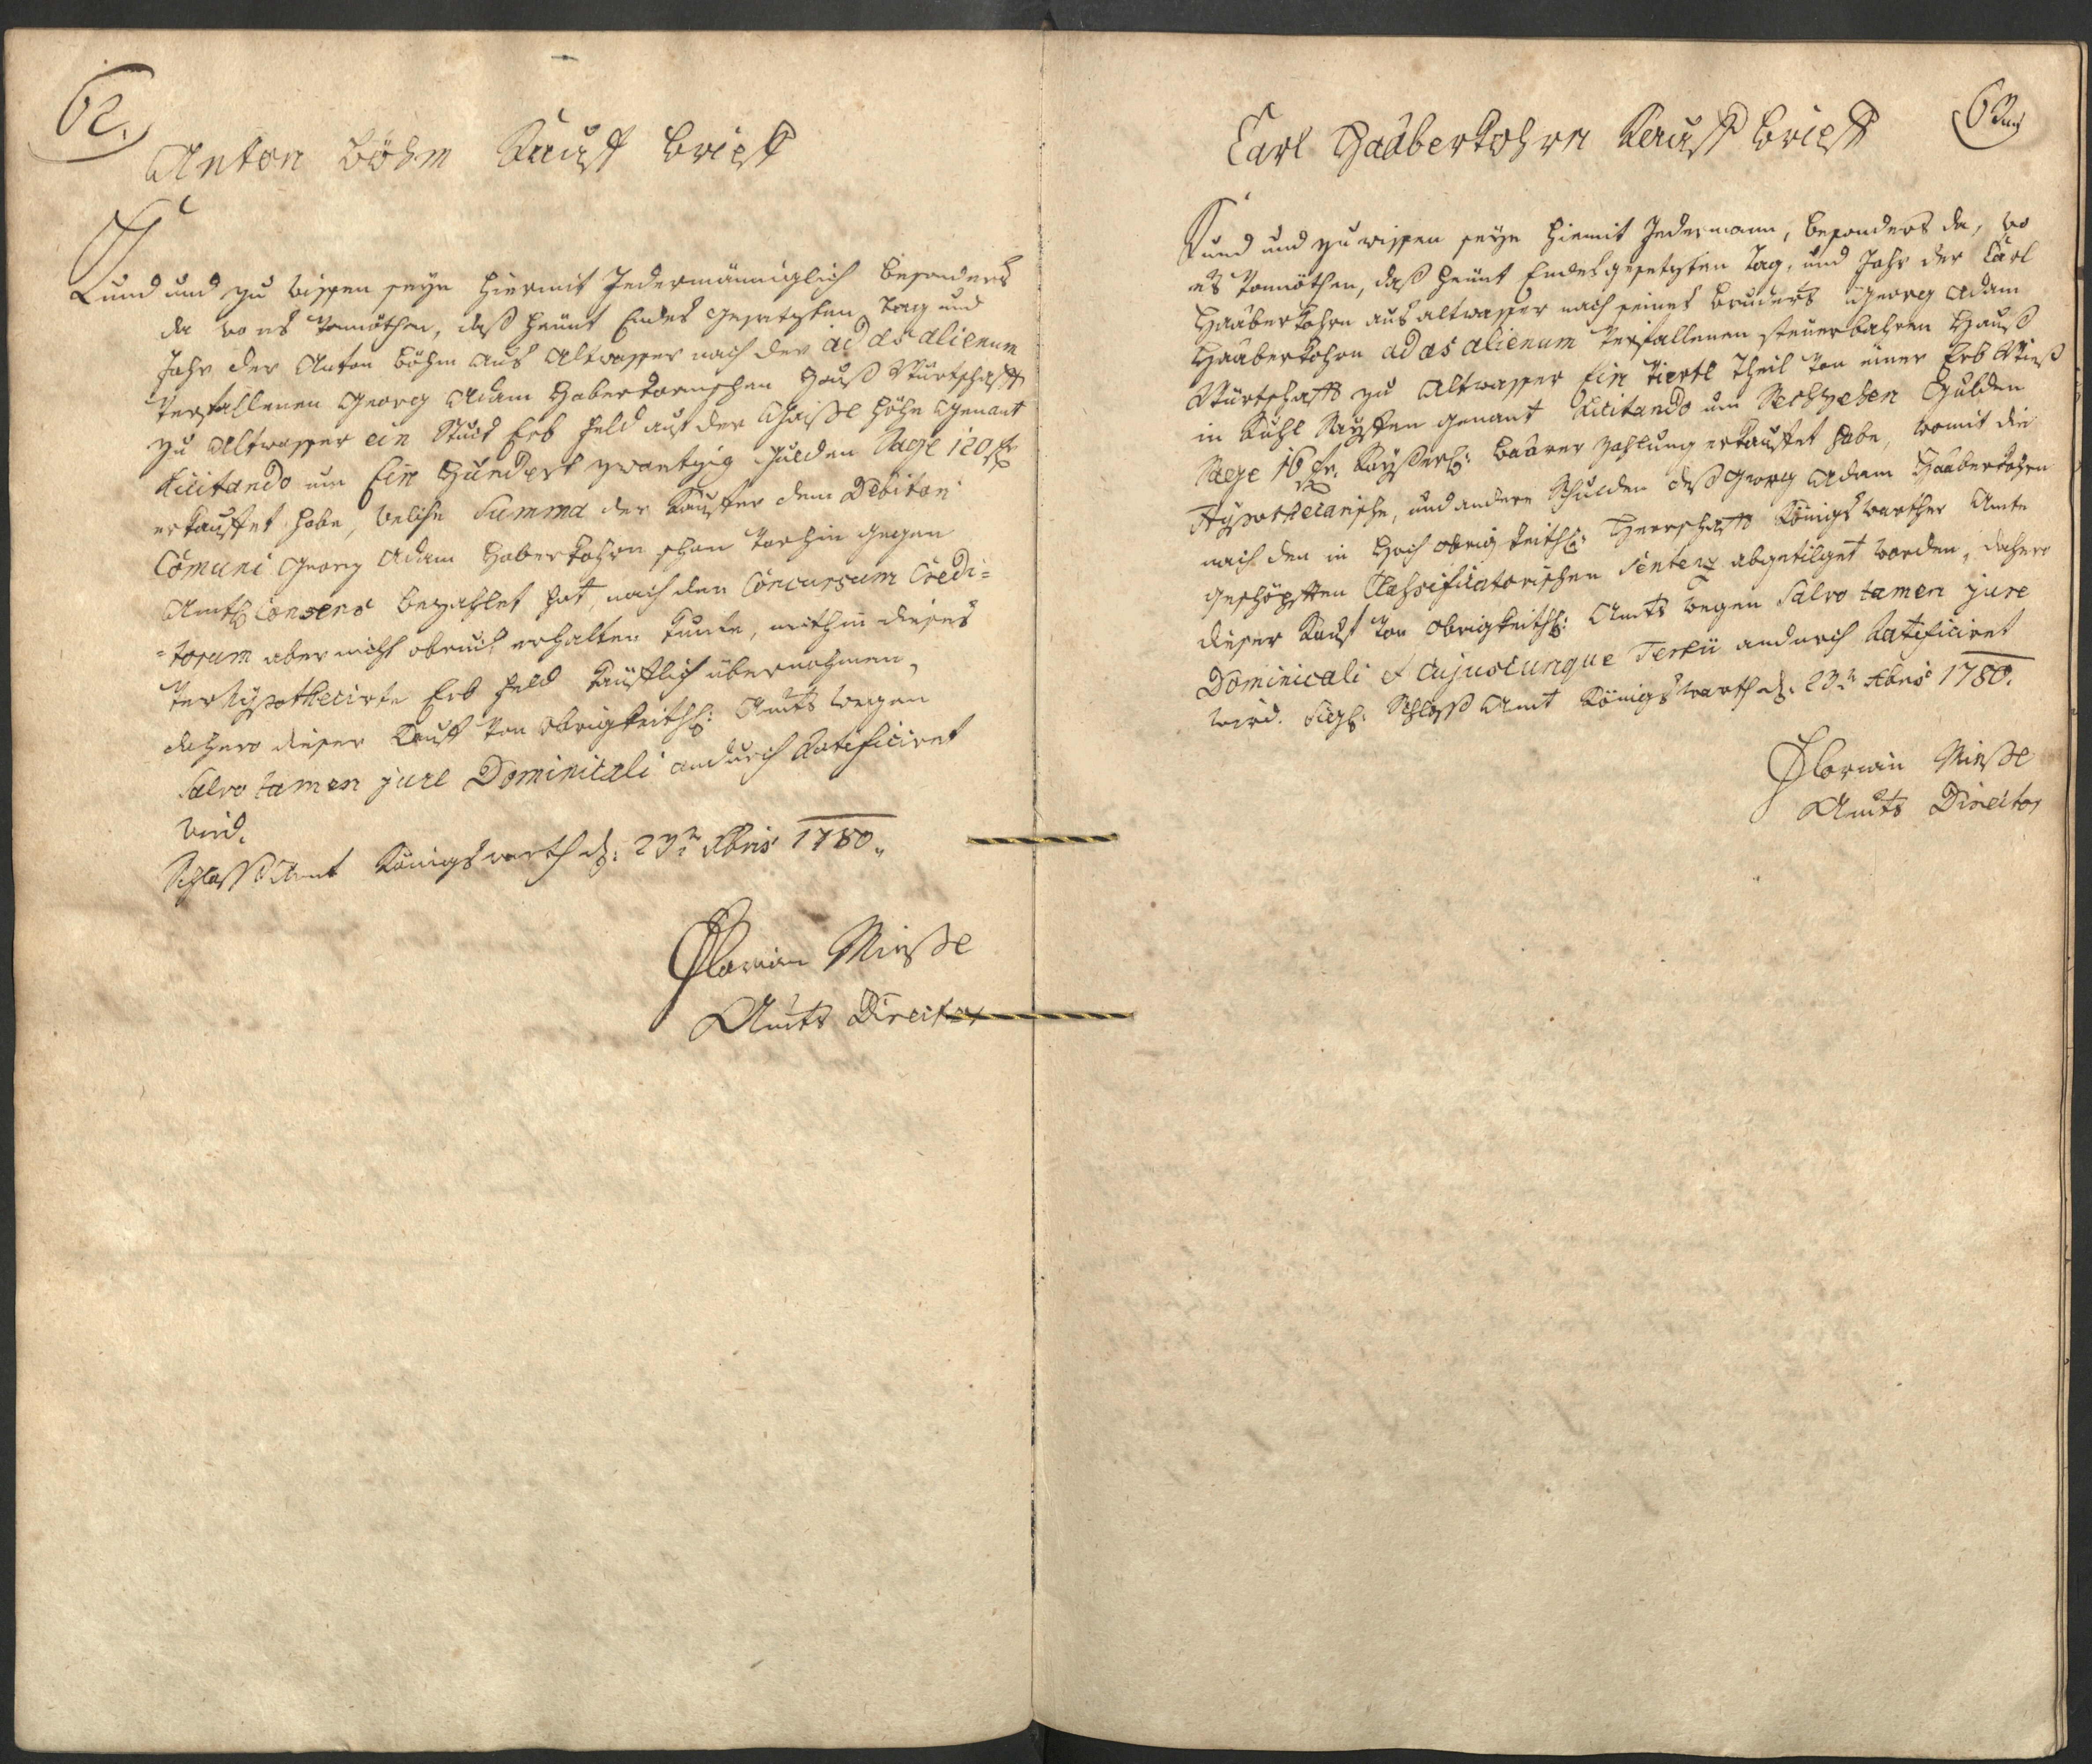 62.
Anton Böhm Kauff brieff
Kund und zu wissen seye hiermit Jedermänniglich besonders
da wo es vonnöthen, daß heünt Endes gesetzten Tag und
Jahr der Anton Böhm aus Altwasser nach der ad æs alienum
verfallenen Georg Adam Haberkornischen Hauß Würtschafft
zu Altwasser ein Stuck Erb Feld auf der Höhe genant
Licitando um Ein Hundert zwantzig Gulden Sage 120 fr
erkauffet habe, welche Summa der Kauffer dem Debitori
Comuni Georg Adam Haberkohrn schon vorhin gegen
Amtl Consens bezahlet hat, nach den Concursum Credi=
=torum aber nicht erhalten kunte, mithin dieses
verhypothecirte Erb Feld käufflich übernohmen,
dahero dieser Kauff von obrigkeithl: Amts wegen
Salvo tamen jure Dominicali andurch Ratificiret
wird.
Schloss Amt Königswarth d: 23n 1780.
Florian Miesße
Amts Director
63
Carl Haaberkohrn Kauff brieff
Kund und zu wissen seye hiemit Jedermann, besonders da, wo
es vonnöthen, daß heünt Endes gesetzten Tag, und Jahr der Carl
Haaberkohrn aus altwasser nach seines bruders Georg Adam
Haaberkohrn ad æs alienum verfallenen steuerbahren Hauß
Würtschafft zu Altwasser Ein viertl Theil von einer Erb Wieß
in genant Licitando um Sechzehen Gulden
Sage 16 fr. Kayßerl: baarer zahlung erkauffet habe, womit die
Hypothecarische, und andere Schulden deß Georg Adam Haaberkohrn
nach den in Hoch obrigkeithl: Herrschafft Königswarther Amte
geschöpften Classificatorischen Sentenz abgetilget worden, dahero
dieser Kauf von obrigkeithl: Amts wegen Salvo tamen jure
Dominicali et cujuscunque Tertii andurch Ratificiret
wird. Sigl: Schloss Amt Königswarth d: 23n 1780.
Florian Miesße
Amts Director